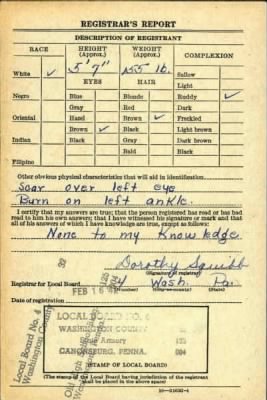 REGISTRAR'S REPORT
DESCRIPTION OF REGISTRANT
RACE HEIGHT (Approx.) WEIGHT (Approx.) COMPLEXION
5' 7" 155 lb.
White ✓ EYES HAIR Sallow
Light
Negro Blue Blonde Ruddy ✓
Gray Red Dark
Oriental Hazel Brown ✓ Freckled
Brown ✓ Black Light brown
Indian Black Gray Dark brown
Bald Black
Filipino
Other obvious physical characteristics that will aid in identification.
Scar over left eye
Burn on left ankle.
I certify that my answers are true; that the person registered has read or has had
read to him his own answers; that I have witnessed his signature or mark and that
all of his answers of which I have knowledge are true, except as follows:
None to my Knowledge
Dorothy Squibb
(Signature of registrar)
Registrar for Local Board 4 Wash. Pa.
FEB 16
Date of registration
LOCAL BOARD NO.
WASHINGTON COUNTY
State Armory 125
CANONSBURG, PENNA. 004
(STAMP OF LOCAL BOARD)
(The stamp of the Local Board having jurisdiction of the registrant
shall be placed in the above space)
Local Board No. 4
Washington County